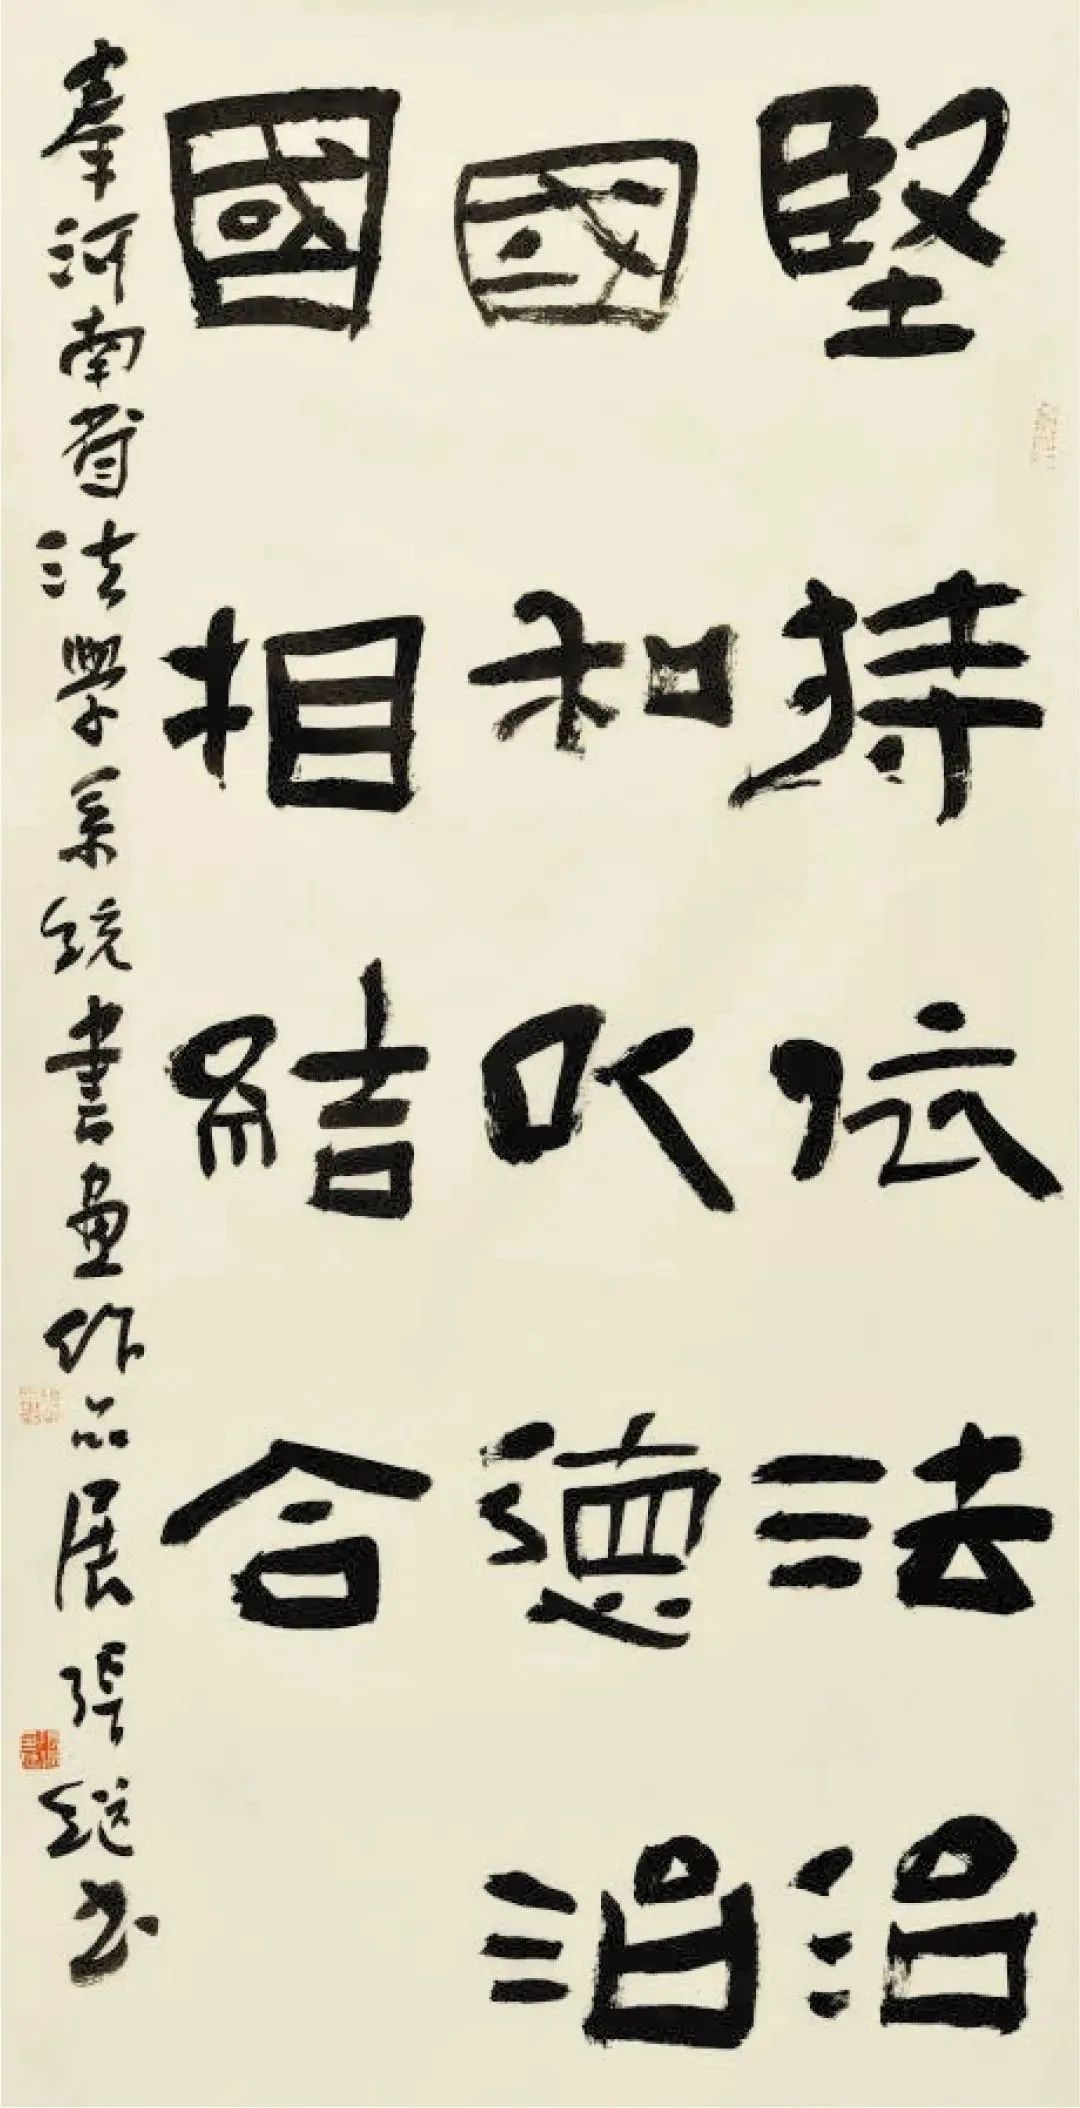 堅持依法治
國和以德治
國相結合
奉河南省法學系統書畫作品展張继书